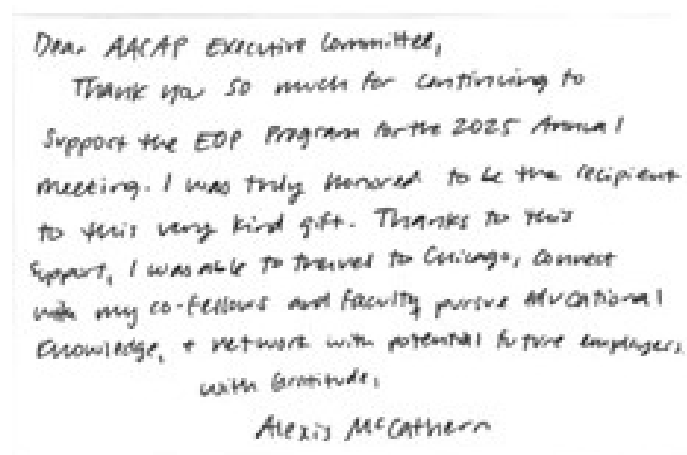 Dear AACAP Executive Committee,
Thank you so much for continuing to
support the EOP Program for the 2025 Annual
meeting. I was truly honored to be the recipient
to this very kind gift. Thanks to this
support, I was able to travel to Chicago, connect
with my co-fellows and faculty, pursue educational
knowledge, + network with potential future employers.
with Gratitude,
Alexis McCathern